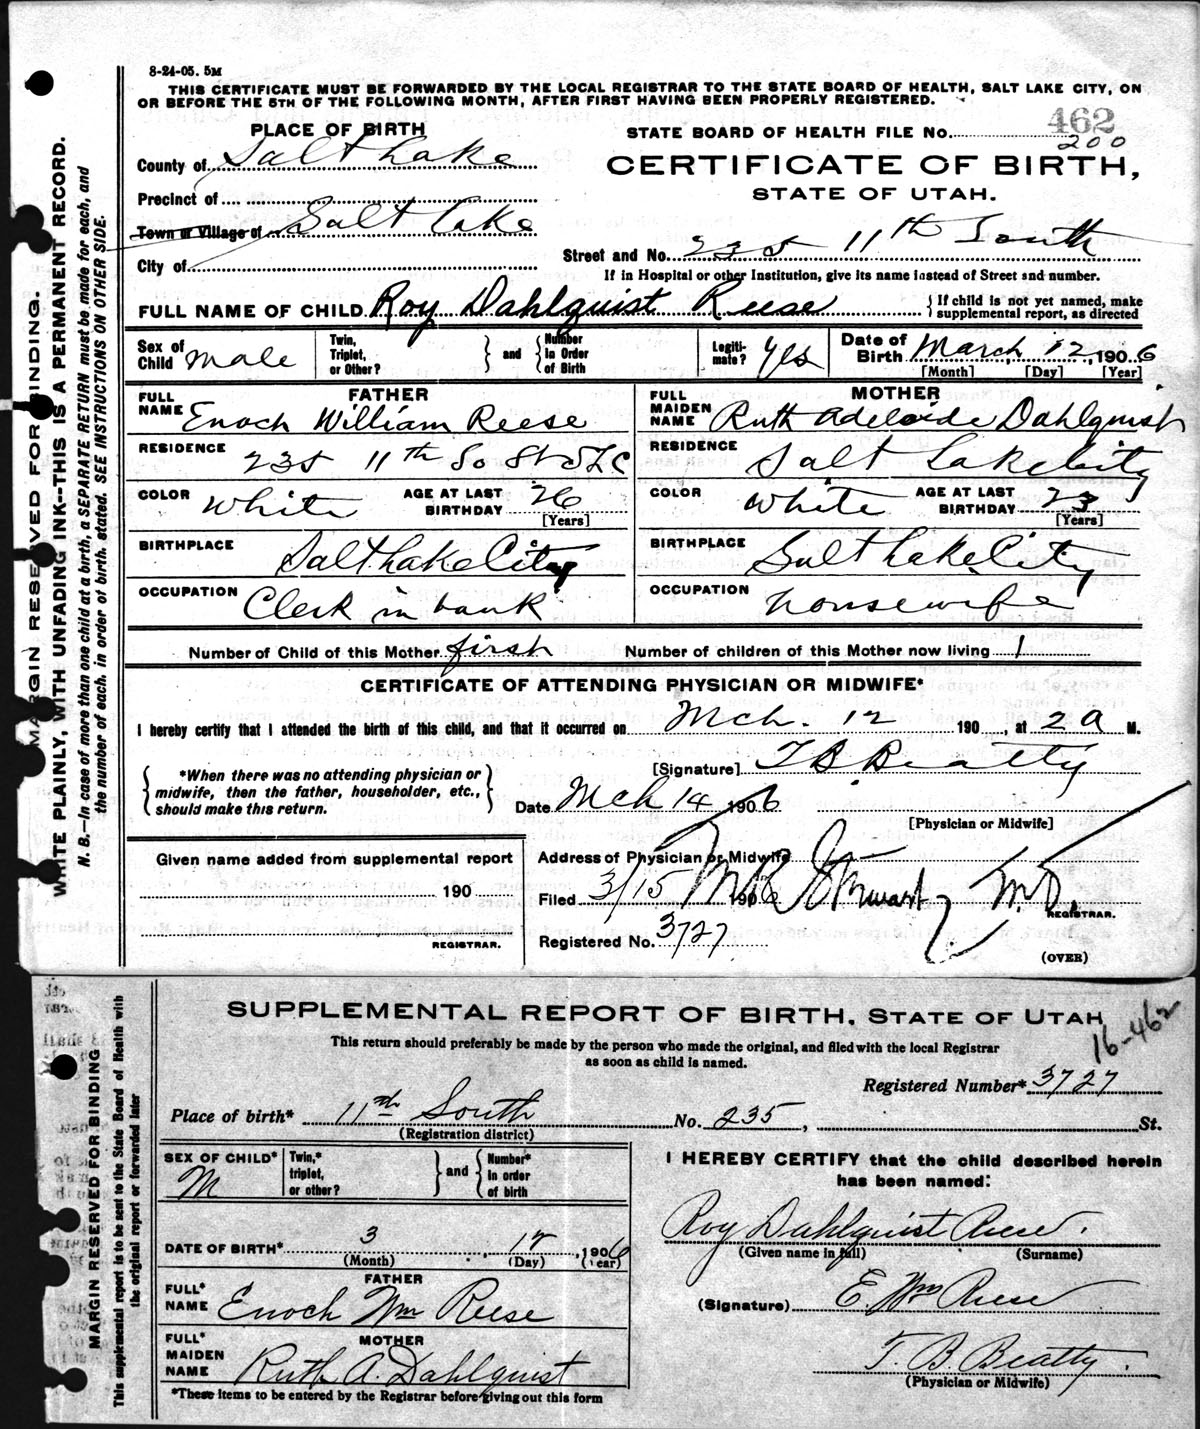 8-24-05. 5M
THIS CERTIFICATE MUST BE FORWARDED BY THE LOCAL REGISTRAR TO THE STATE BOARD OF HEALTH, SALT LAKE CITY, ON
OR BEFORE THE 5TH OF THE FOLLOWING MONTH, AFTER FIRST HAVING BEEN PROPERLY REGISTERED.
PLACE OF BIRTH
STATE BOARD OF HEALTH FILE No. 462
200
County of Salt Lake
CERTIFICATE OF BIRTH,
STATE OF UTAH.
Precinct of
Town or Village of Salt Lake
City of
Street and No. 235 11th South
If in Hospital or other Institution, give its name instead of Street and number.
FULL NAME OF CHILD Roy Dahlquist Reese
{ If child is not yet named, make
supplemental report, as directed
Sex of Child male
Twin, Triplet, or Other? } and { Number in Order of Birth
Legiti-mate? Yes
Date of Birth March 12, 1906
[Month] [Day] [Year]
FATHER
FULL NAME Enoch William Reese
RESIDENCE 235 11th So St SLC
COLOR White AGE AT LAST BIRTHDAY 26 [Years]
BIRTHPLACE Salt Lake City
OCCUPATION Clerk in bank
MOTHER
FULL MAIDEN NAME Ruth Adelaide Dahlquist
RESIDENCE Salt Lake City
COLOR White AGE AT LAST BIRTHDAY 23 [Years]
BIRTHPLACE Salt Lake City
OCCUPATION housewife
Number of Child of this Mother first Number of children of this Mother now living 1
CERTIFICATE OF ATTENDING PHYSICIAN OR MIDWIFE*
I hereby certify that I attended the birth of this child, and that it occurred on Mch. 12 190 , at 2 a M.
{ *When there was no attending physician or
midwife, then the father, householder, etc.,
should make this return. }
[Signature] T B Beatty
Date Mch 14 1906
[Physician or Midwife]
Given name added from supplemental report
190
REGISTRAR.
Address of Physician or Midwife
Filed 3/15 1906 M.D.
REGISTRAR.
Registered No. 3727
(OVER)
MARGIN RESERVED FOR BINDING.
WRITE PLAINLY, WITH UNFADING INK--THIS IS A PERMANENT RECORD.
N. B.—In case of more than one child at a birth, a SEPARATE RETURN must be made for each, and
the number of each, in order of birth, stated. SEE INSTRUCTIONS ON OTHER SIDE.
SUPPLEMENTAL REPORT OF BIRTH, STATE OF UTAH
16-462
This return should preferably be made by the person who made the original, and filed with the local Registrar
as soon as child is named.
Registered Number* 3727
Place of birth* 11th South No. 235, St.
(Registration district)
SEX OF CHILD* M
Twin,* triplet, or other? } and { Number* in order of birth
I HEREBY CERTIFY that the child described herein
has been named:
Roy Dahlquist Reese.
(Given name in full) (Surname)
DATE OF BIRTH* 3 12, 1906
(Month) (Day) (Year)
FATHER
FULL* NAME Enoch Wm Reese
(Signature) E. Wm Reese
MOTHER
FULL* MAIDEN NAME Ruth A. Dahlquist
T. B. Beatty.
(Physician or Midwife)
*These items to be entered by the Registrar before giving out this form
MARGIN RESERVED FOR BINDING
This supplemental report is to be sent to the State Board of Health with
the original report or forwarded later